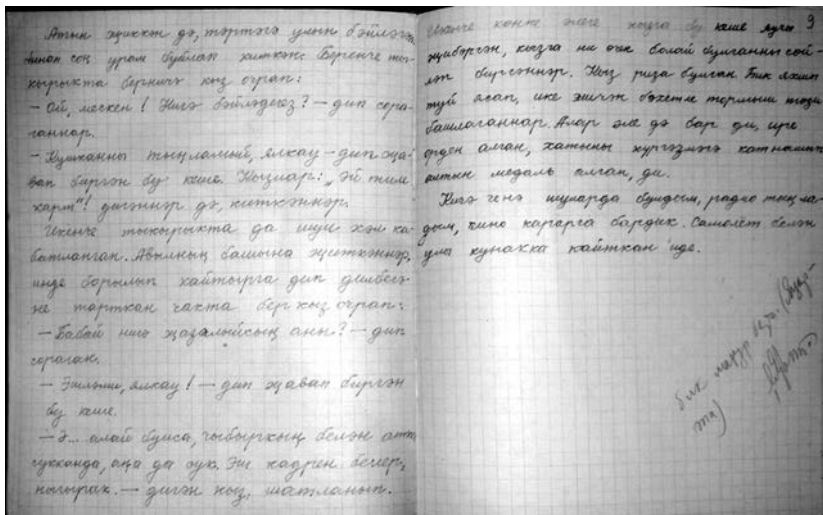 Атын җиккән дә, тәртәгә улын бәйләгән
Шинан соң урам буйлап киткән. Беренче ты-
кырыкта берничә кыз очрап:
– Ой, мескен! Нигә бәйләдегез? – дип сора-
ганнар.
– Кушканны тыңламый, ялкау – дип җа-
вап биргән бу кеше. Кызлар: „Эй тиле
карт"! дигәннәр дә, киткәннәр.
Икенче тыкырыкта да шул хәл ка-
батланган. Авылның башына җиткәннәр,
инде борылып кайтырга дип дилбегә-
не тарткан чакта бер кыз очрап:
– Бабай нигә җәзалыйсың аны? – дип
сораган.
– Эшләми, ялкау! – дип җавап биргән
бу кеше.
– Ә... алай булса, чыбыркың белән
сукканда, аңа да сук. Эш кадрен белер,
ныгырак. – дигән кыз, шатланып.
9
Икенче көнне әлеге кызга бу кеше яучы
җибәргән, кызга ни өчен болай булганны сөй-
ләп биргәннәр. Кыз риза булган. Бик яхшы
туй ясап, ике эшчән бәхетле тормыш төзи
башлаганнар. Алар әле дә бар ди, ире
орден алган, хатыны күргәзмәгә катнашып
алтын медаль алган, ди.
Кичә генә шуларда булдым, радио тыңла-
дым, кино карарга бардык. Самолёт белән
улы кунакка кайткан иде.
бик матур